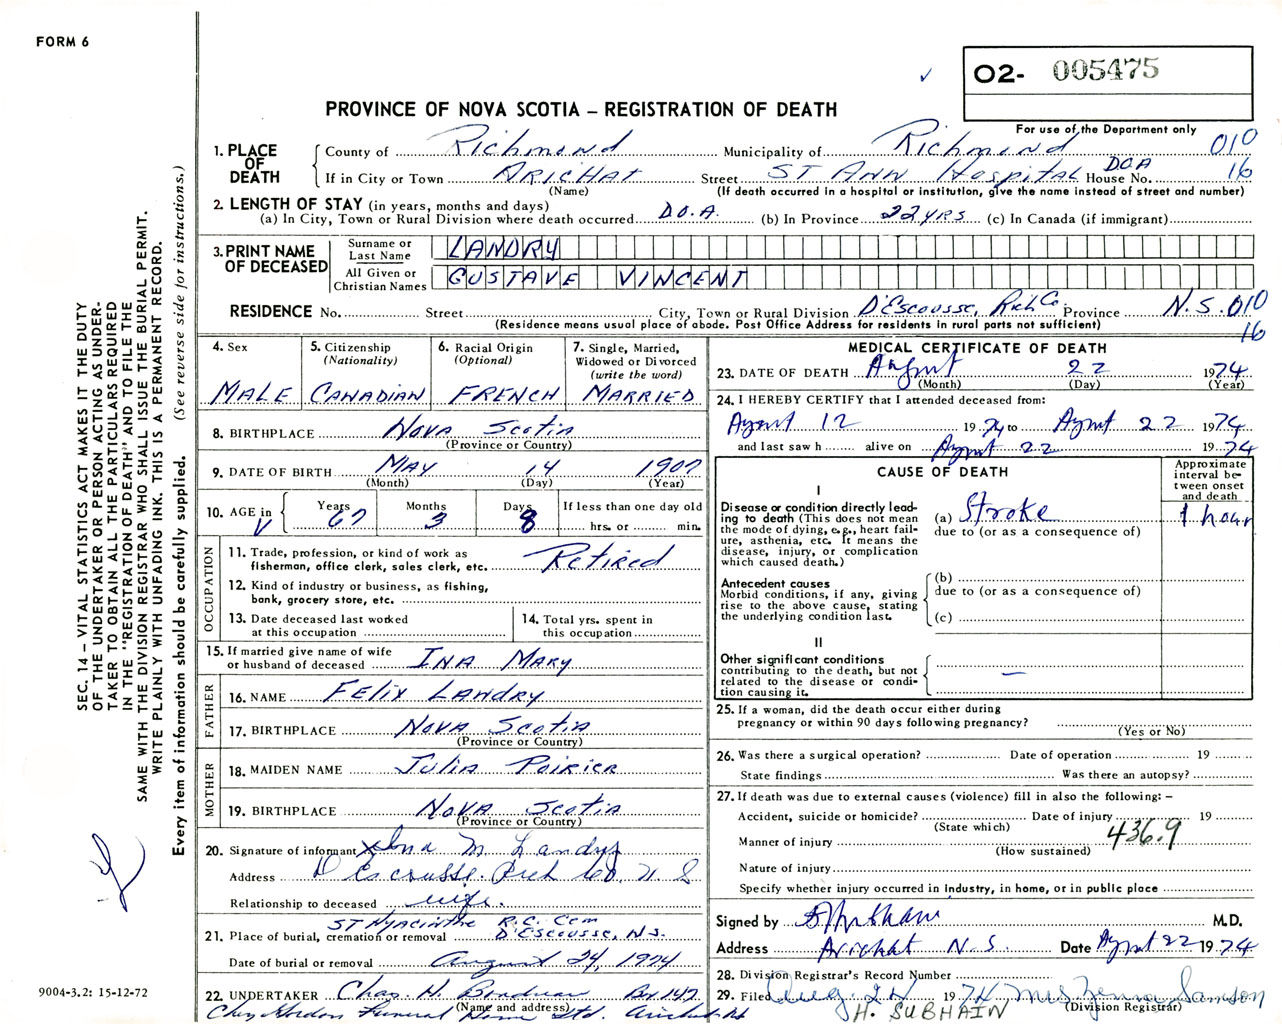 FORM 6
O2- 005475
PROVINCE OF NOVA SCOTIA – REGISTRATION OF DEATH
For use of the Department only
1. PLACE OF DEATH
County of Richmond Municipality of Richmond 010
If in City or Town ARICHAT Street ST ANN Hospital House No. D.O.A 16
(Name) (If death occurred in a hospital or institution, give the name instead of street and number)
2. LENGTH OF STAY (in years, months and days)
(a) In City, Town or Rural Division where death occurred D.O.A. (b) In Province 22 YRS (c) In Canada (if immigrant)
3. PRINT NAME OF DECEASED
Surname or Last Name LANDRY
All Given or Christian Names GUSTAVE VINCENT
RESIDENCE No. Street City, Town or Rural Division D'Escousse, Rich Co. Province N.S. 010
(Residence means usual place of abode. Post Office Address for residents in rural parts not sufficient) 16
4. Sex MALE
5. Citizenship (Nationality) CANADIAN
6. Racial Origin (Optional) FRENCH
7. Single, Married, Widowed or Divorced (write the word) MARRIED
8. BIRTHPLACE Nova Scotia
(Province or Country)
9. DATE OF BIRTH MAY 14 1907
(Month) (Day) (Year)
10. AGE in Years 67 Months 3 Days 8 If less than one day old hrs. or min.
OCCUPATION
11. Trade, profession, or kind of work as fisherman, office clerk, sales clerk, etc. Retired
12. Kind of industry or business, as fishing, bank, grocery store, etc.
13. Date deceased last worked at this occupation
14. Total yrs. spent in this occupation
15. If married give name of wife or husband of deceased INA MARY
FATHER
16. NAME FELIX LANDRY
17. BIRTHPLACE NOVA SCOTIA
(Province or Country)
MOTHER
18. MAIDEN NAME JULIA POIRIER
19. BIRTHPLACE NOVA SCOTIA
(Province or Country)
20. Signature of informant x Ina M Landry
Address D'Escousse. Rich Co. N. S
Relationship to deceased wife.
21. Place of burial, cremation or removal ST Hyacinthe R.C. Cem D'Escousse, N.S.
Date of burial or removal August 24, 1974
22. UNDERTAKER Chas. H. Boudreau Box 147
(Name and address)
Funeral Home Ltd. Arichat NS
MEDICAL CERTIFICATE OF DEATH
23. DATE OF DEATH August 22 1974
(Month) (Day) (Year)
24. I HEREBY CERTIFY that I attended deceased from:
August 12 1974 to August 22 1974
and last saw h alive on August 22 1974
CAUSE OF DEATH
Approximate interval between onset and death
I
Disease or condition directly leading to death (This does not mean the mode of dying, e.g., heart failure, asthenia, etc. It means the disease, injury, or complication which caused death.)
(a) Stroke 1 hour
due to (or as a consequence of)
Antecedent causes
Morbid conditions, if any, giving rise to the above cause, stating the underlying condition last.
(b)
due to (or as a consequence of)
(c)
II
Other significant conditions contributing to the death, but not related to the disease or condition causing it. —
25. If a woman, did the death occur either during pregnancy or within 90 days following pregnancy?
(Yes or No)
26. Was there a surgical operation? Date of operation 19
State findings Was there an autopsy?
27. If death was due to external causes (violence) fill in also the following: –
Accident, suicide or homicide? Date of injury 19
(State which) 436.9
Manner of injury
(How sustained)
Nature of injury
Specify whether injury occurred in industry, in home, or in public place
Signed by M.D.
Address Arichat N.S. Date August 22 1974
28. Division Registrar's Record Number
29. Filed Aug 24 1974 Mrs Zenna Samson
(Division Registrar)
H. SUBHAIN
SEC. 14 – VITAL STATISTICS ACT MAKES IT THE DUTY
OF THE UNDERTAKER OR PERSON ACTING AS UNDER-
TAKER TO OBTAIN ALL THE PARTICULARS REQUIRED
IN THE "REGISTRATION OF DEATH" AND TO FILE THE
SAME WITH THE DIVISION REGISTRAR WHO SHALL ISSUE THE BURIAL PERMIT.
WRITE PLAINLY WITH UNFADING INK. THIS IS A PERMANENT RECORD.
Every item of information should be carefully supplied. (See reverse side for instructions.)
9004-3.2: 15-12-72